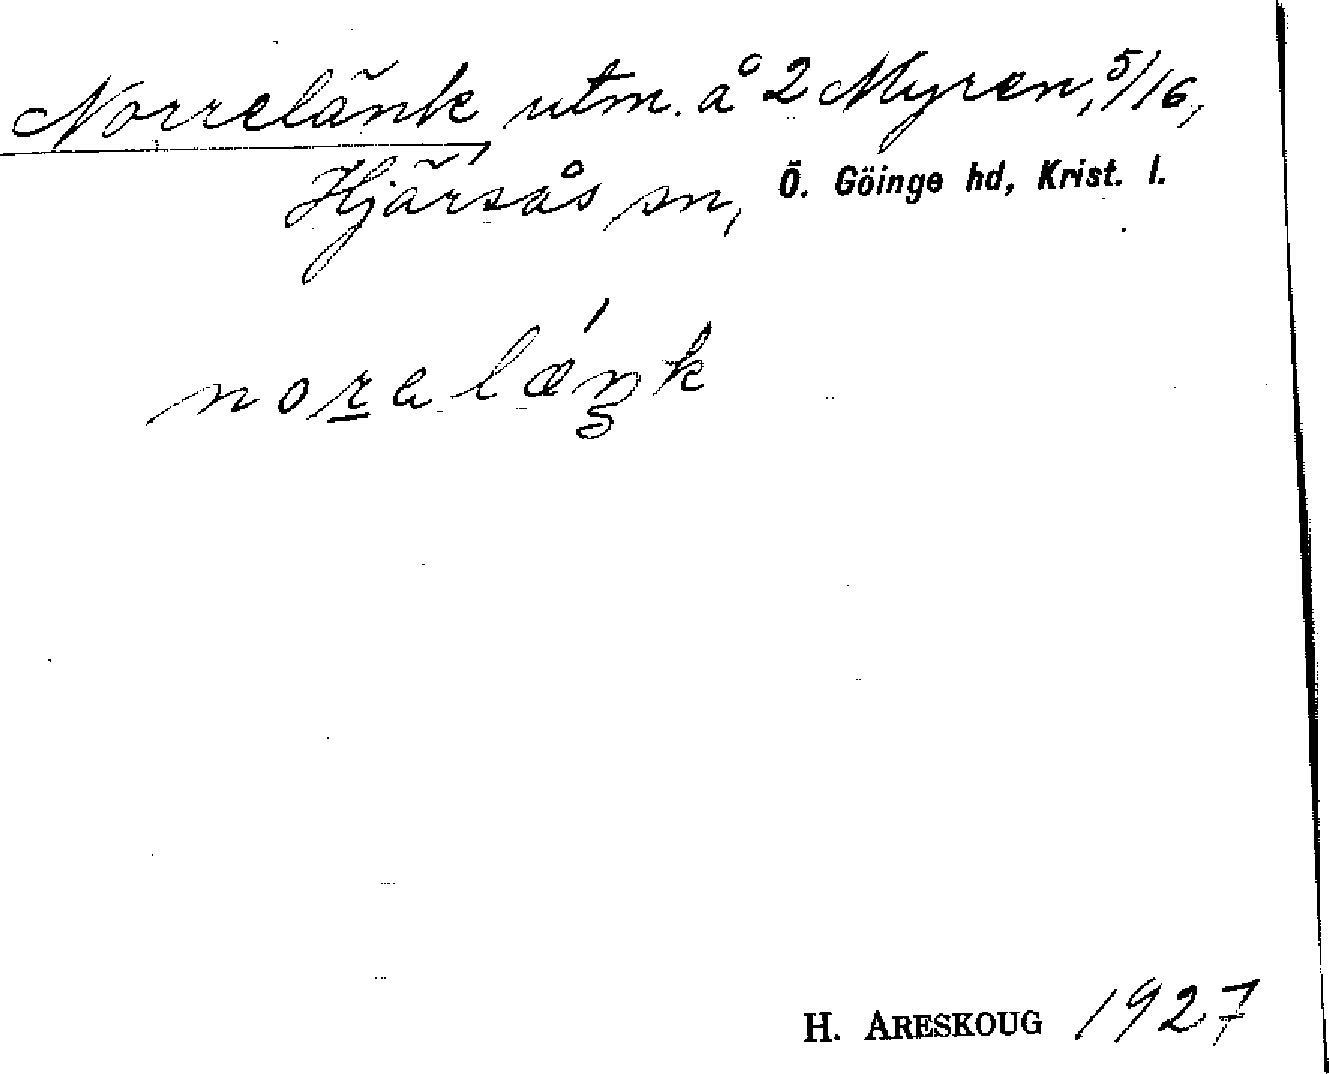 Norrelänk utm. å 2 Myren, 5/16,
Hjärsås sn, Ö. Göinge hd, Krist. l.
noralǽŋk
H. ARESKOUG 1927